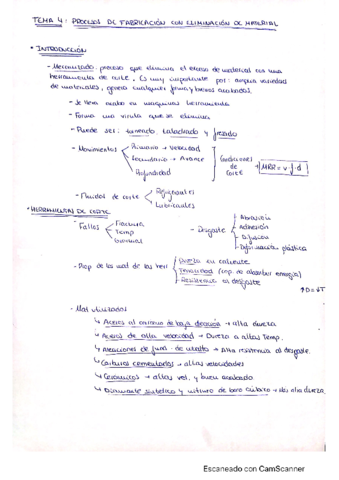 TEMA 4: PROCESOS DE FABRICACIÓN CON ELIMINACIÓN DE MATERIAL
• INTRODUCCIÓN
- Mecanizado: proceso que elimina el exceso de material con una
herramienta de corte. Es muy importante por: amplia variedad
de materiales, genera cualquier forma y buenos acabados.
- Se lleva acabo en maquinas herramienta
- Forma una viruta que se elimina
- Puede ser: torneado, taladrado y fresado
- Movimientos
Primario → Velocidad
Secundario → Avance
Profundidad
Condiciones
de
Corte
MRR = v f d
- Fluidos de corte
Refrigerantes
Lubricantes
• HERRAMIENTAS DE CORTE
- Fallos
Fractura
Temp
Gradual
- Desgaste
Abrasión
Adhesión
Difusión
Deformación plástica
- Prop de los mat de las herr
Dureza en caliente
Tenacidad (cap. de absorber energía)
Resistencia al desgaste
↑D = ↓T
- Mat utilizados
↳ Aceros al carbono de baja aleación → alta dureza
↳ Aceros de alta velocidad → Dureza a altas Temp.
↳ Aleaciones de fund. de cobalto → Alta resistencia al desgaste.
↳ Carburos cementados → altas velocidades
↳ Cerámicos → altas vel. y buen acabado
↳ Diamante sintético y nitruro de boro cúbico → alta dureza.
Escaneado con CamScanner